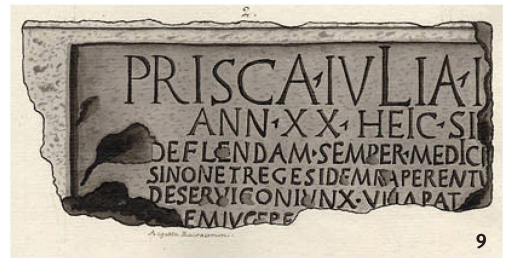 2.
PRISCA·IVLIA·I
ANN·XX·HEIC·SI
DEFLENDAM·SEMPER·MEDICI
SINONETREGESIDEMRAPERENTV
DESERVICONIVNX·
Augusta Rauracorum.
9